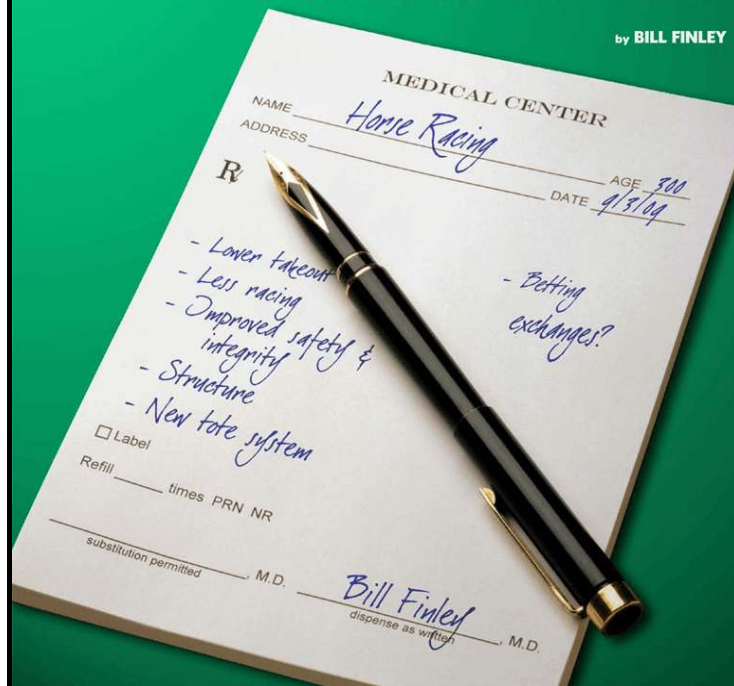 by BILL FINLEY
MEDICAL CENTER
NAME Horse Racing
AGE 300
ADDRESS
DATE 9/3/09
Rx
- Lower takeout
- Less racing
- Improved safety &
integrity
- Structure
- New tote system
- Betting
exchanges?
Label
Refill times PRN NR
substitution permitted , M.D.
Bill Finley
dispense as written , M.D.